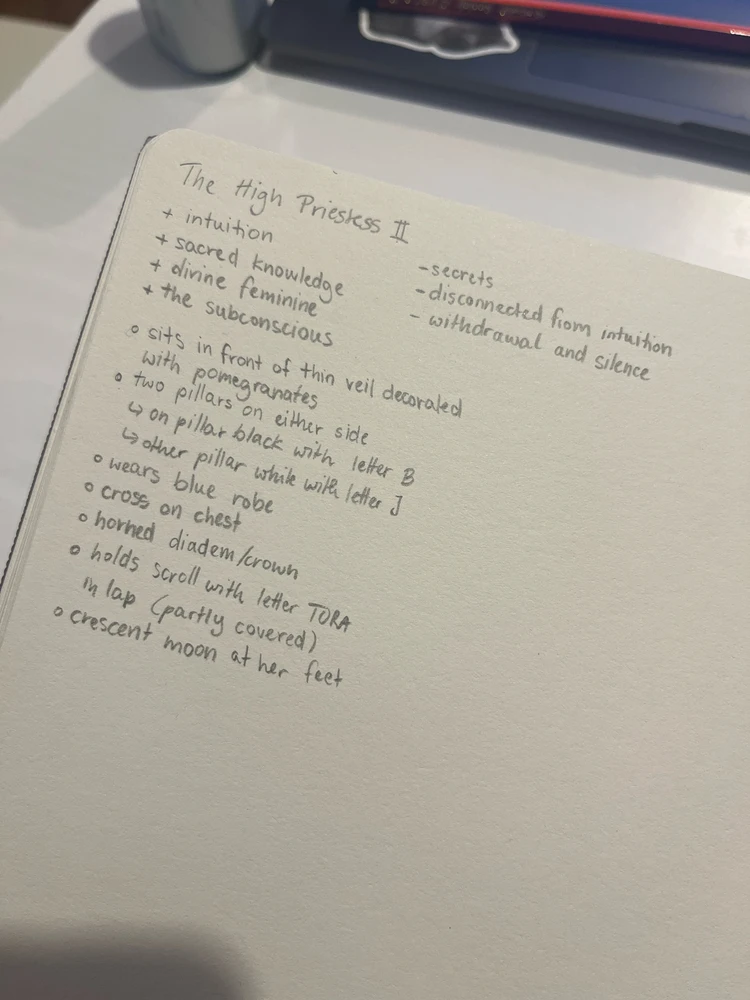 The High Priestess II
+ intuition
+ sacred knowledge
+ divine feminine
+ the subconscious
- secrets
- disconnected from intuition
- withdrawal and silence
o sits in front of thin veil decorated
with pomegranates
o two pillars on either side
↳ on pillar black with letter B
↳ other pillar while with letter J
o wears blue robe
o cross on chest
o horned diadem/crown
o holds scroll with letter TORA
in lap (partly covered)
o crescent moon at her feet